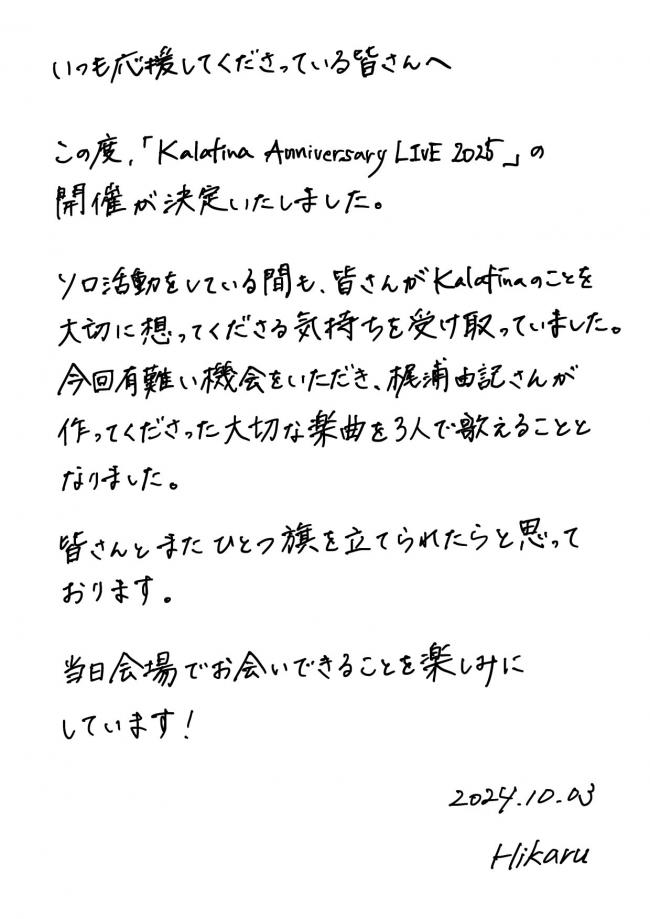 いつも応援してくださっている皆さんへ
この度、「Kalafina Anniversary LIVE 2025」の
開催が決定いたしました。
ソロ活動をしている間も、皆さんがKalafinaのことを
大切に想ってくださる気持ちを受け取っていました。
今回有難い機会をいただき、梶浦由記さんが
作ってくださった大切な楽曲を3人で歌えることと
なりました。
皆さんとまたひとつ旗を立てられたらと思って
おります。
当日会場でお会いできることを楽しみに
しています!
2024.10.03
Hikaru